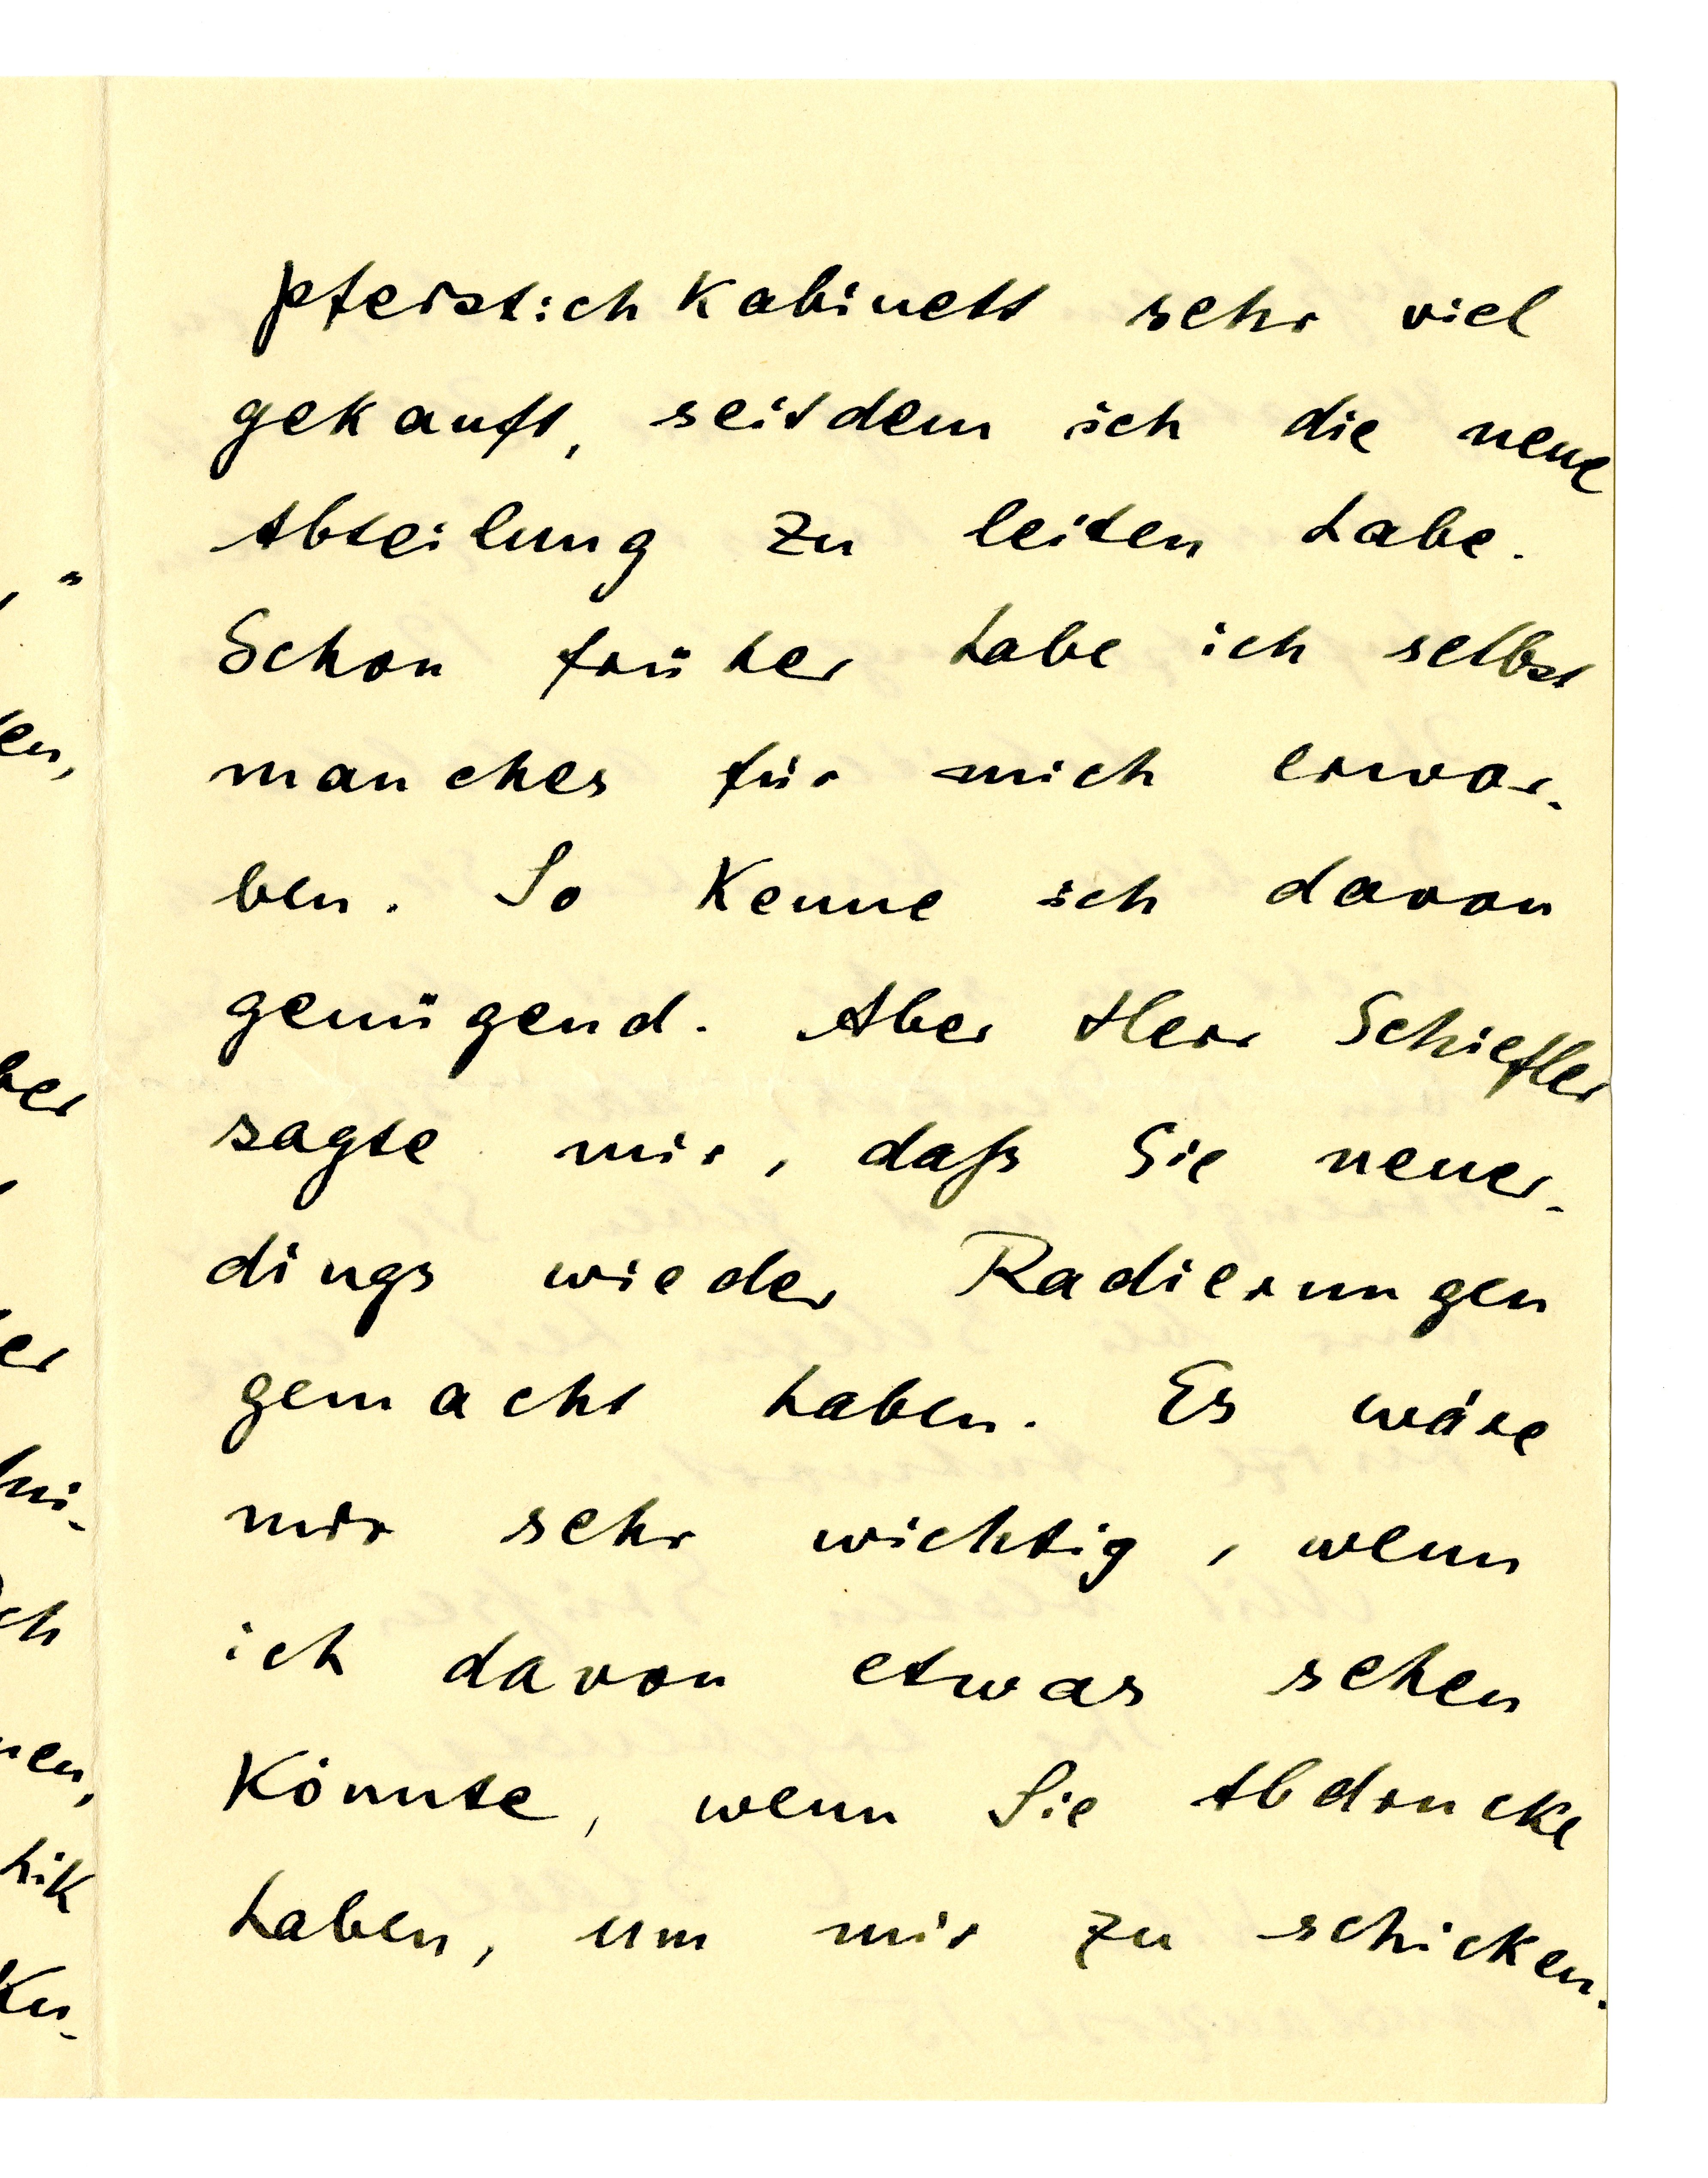 pferstichkabinett sehr viel
gekauft, seitdem ich die neue
Abteilung zu leiten habe.
Schon früher habe ich selbst
manches für mich erwor-
ben. So kenne ich davon
genügend. Aber Herr Schiefler
sagte mir, daß Sie neuer-
dings wieder Radierungen
gemacht haben. Es wäre
mir sehr wichtig, wenn
ich davon etwas sehen
könnte, wenn Sie Abdrucke
haben, um mir zu schicken.